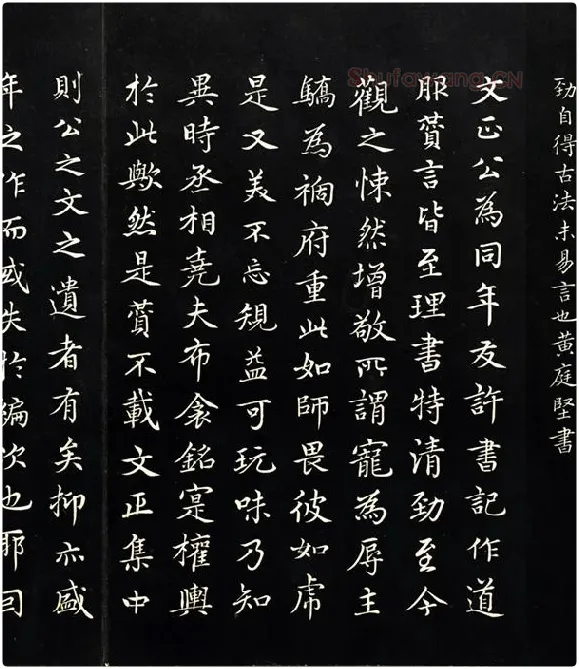 勁自得古法未易言也黃庭堅書
文正公為同年友許書記作道
服贊言皆至理書特清勁至今
觀之悚然增敬所謂寵為辱主
驕為禍府重此如師畏彼如虎
是又美不忘規益可玩味乃知
異時丞相堯夫布衾銘寔權輿
於此歟然是贊不載文正集中
則公之文之遺者有矣抑亦盛
年之作而或失於編次也耶
Shufawang.CN